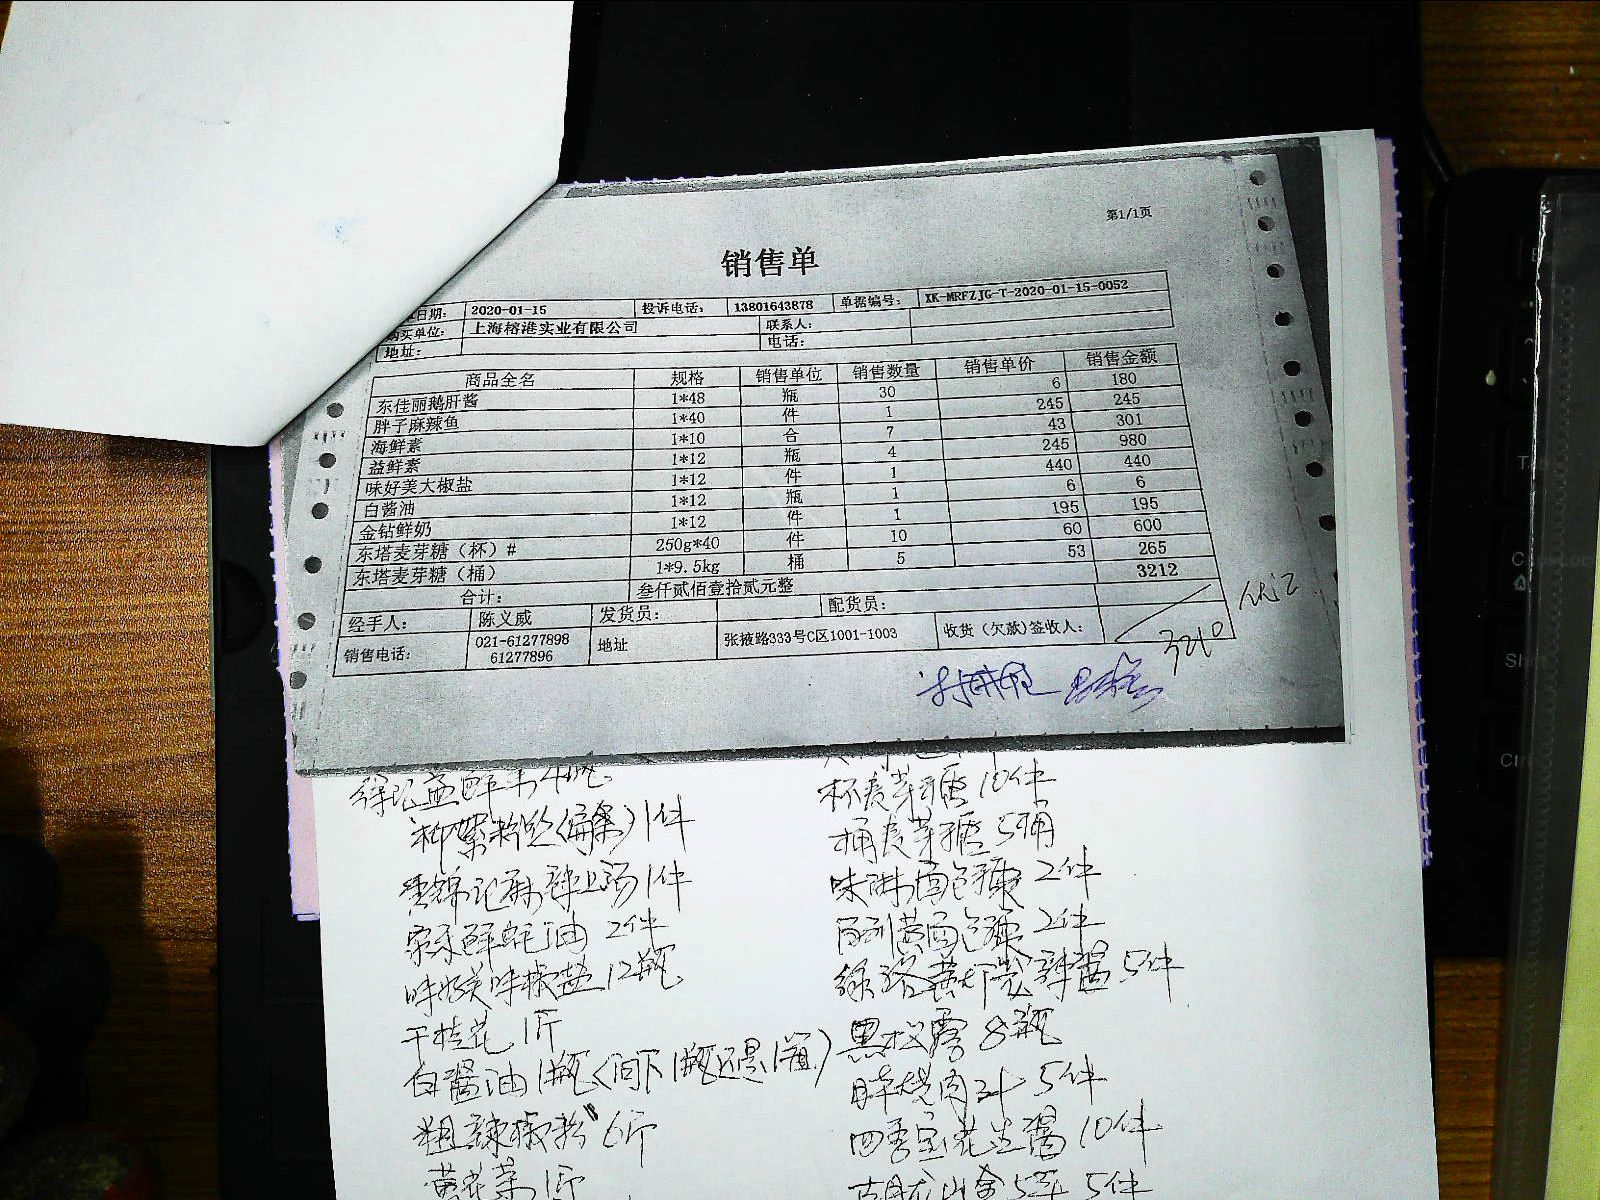 第1/1页
销售单
日期： 2020-01-15 投诉电话： 13801643878 单据编号： XK-MRFZJG-T-2020-01-15-0052
购买单位： 上海榕港实业有限公司 联系人：
地址： 电话：
商品全名 规格 销售单位 销售数量 销售单价 销售金额
东佳丽鹅肝酱 1*48 瓶 30 6 180
胖子麻辣鱼 1*40 件 1 245 245
海鲜素 1*10 合 7 43 301
益鲜素 1*12 瓶 4 245 980
味好美大椒盐 1*12 件 1 440 440
白酱油 1*12 瓶 1 6 6
金钻鲜奶 1*12 件 1 195 195
东塔麦芽糖（杯）# 250g*40 件 10 60 600
东塔麦芽糖（桶） 1*9.5kg 桶 5 53 265
合计： 叁仟贰佰壹拾贰元整 3212
经手人： 陈义威 发货员： 配货员：
销售电话： 021-61277898 61277896 地址 张掖路333号C区1001-1003 收货（欠款）签收人：
3210
益鲜素4瓶
(扁条)1件
麻辣上汤1件
蚝油 2件
味好美味椒盐12瓶
干桂花 1斤
白酱油1瓶(问下1瓶还是1箱)
粗辣椒粉 6斤
黄花菜1斤
杯麦芽糖10件
桶麦芽糖5桶
2件
2件
黄灯笼辣酱5件
黑松露8瓶
5件
四季宝花生酱10件
5件